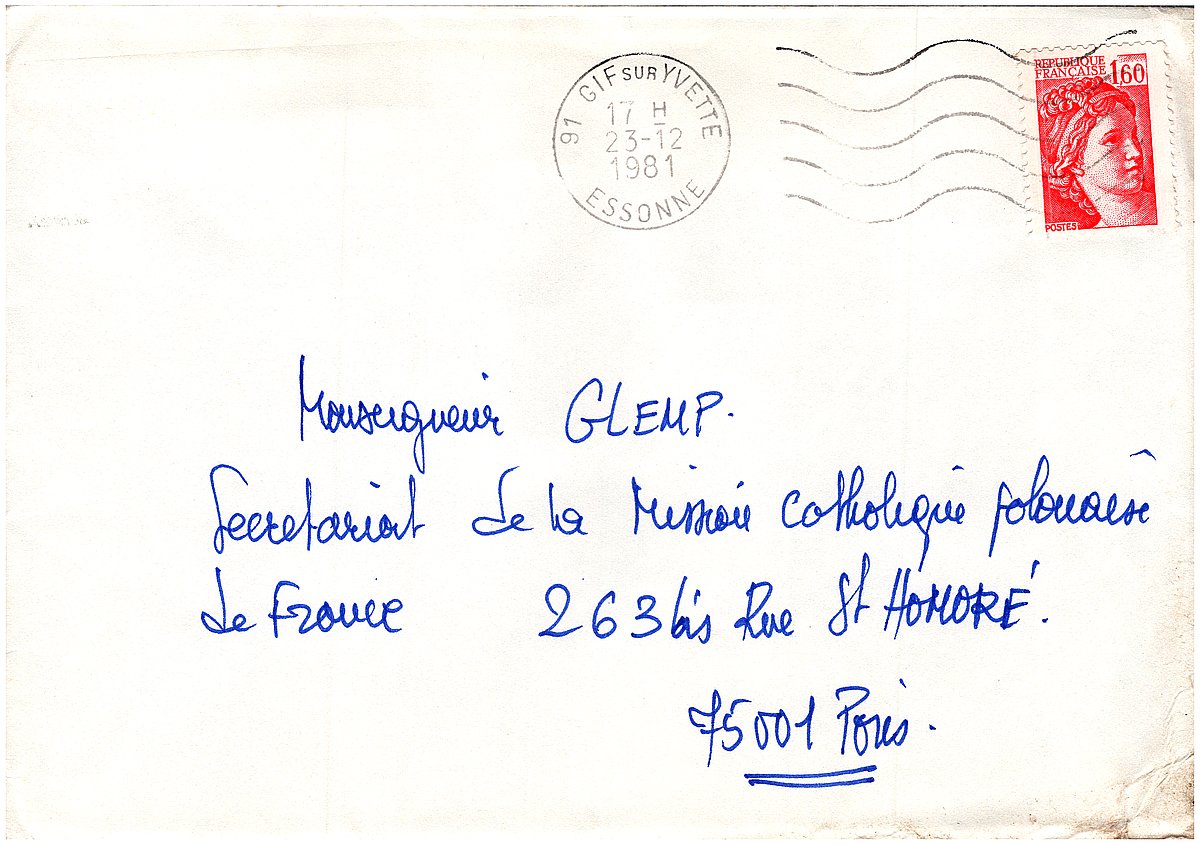 91 GIF SUR YVETTE
17 H
23-12
1981
ESSONNE
REPUBLIQUE
FRANÇAISE 1,60
POSTES
Monseigneur GLEMP.
Secretariat de la Mission Catholique polonaise
de France 263 bis Rue St HONORÉ.
75001 Paris.